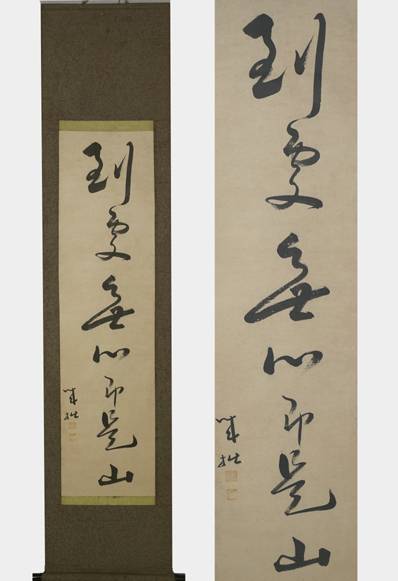 到處無心即是山
誠拙
到處無心即是山
誠拙